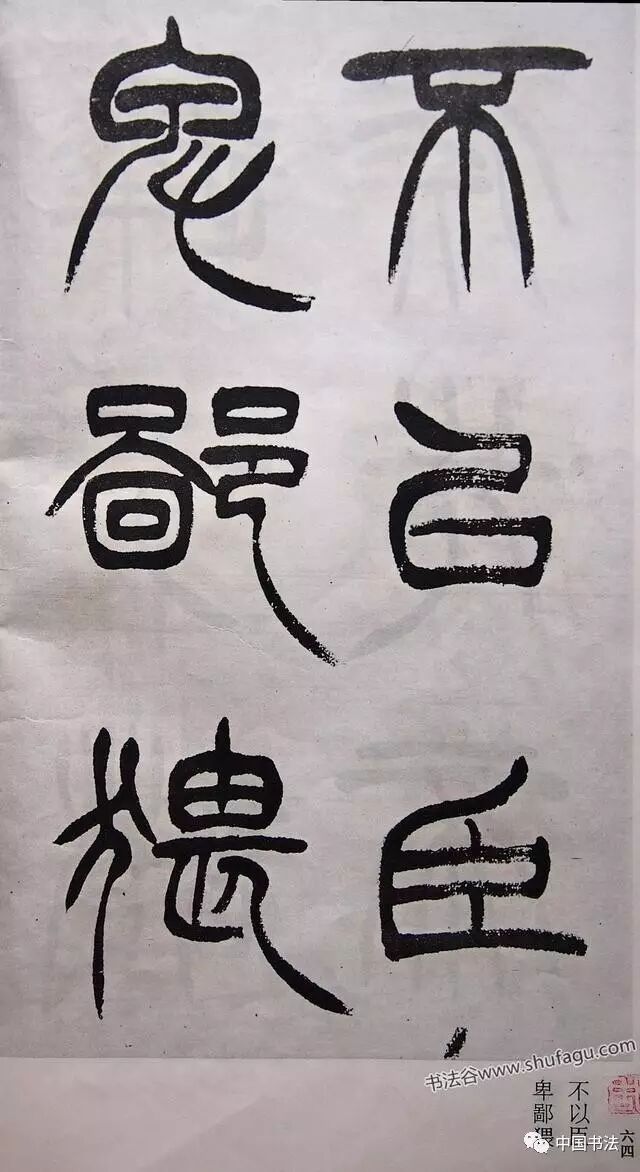 不以臣
卑鄙猥
书法谷www.shufagu.com
不以臣
卑鄙猥
六四
中国书法